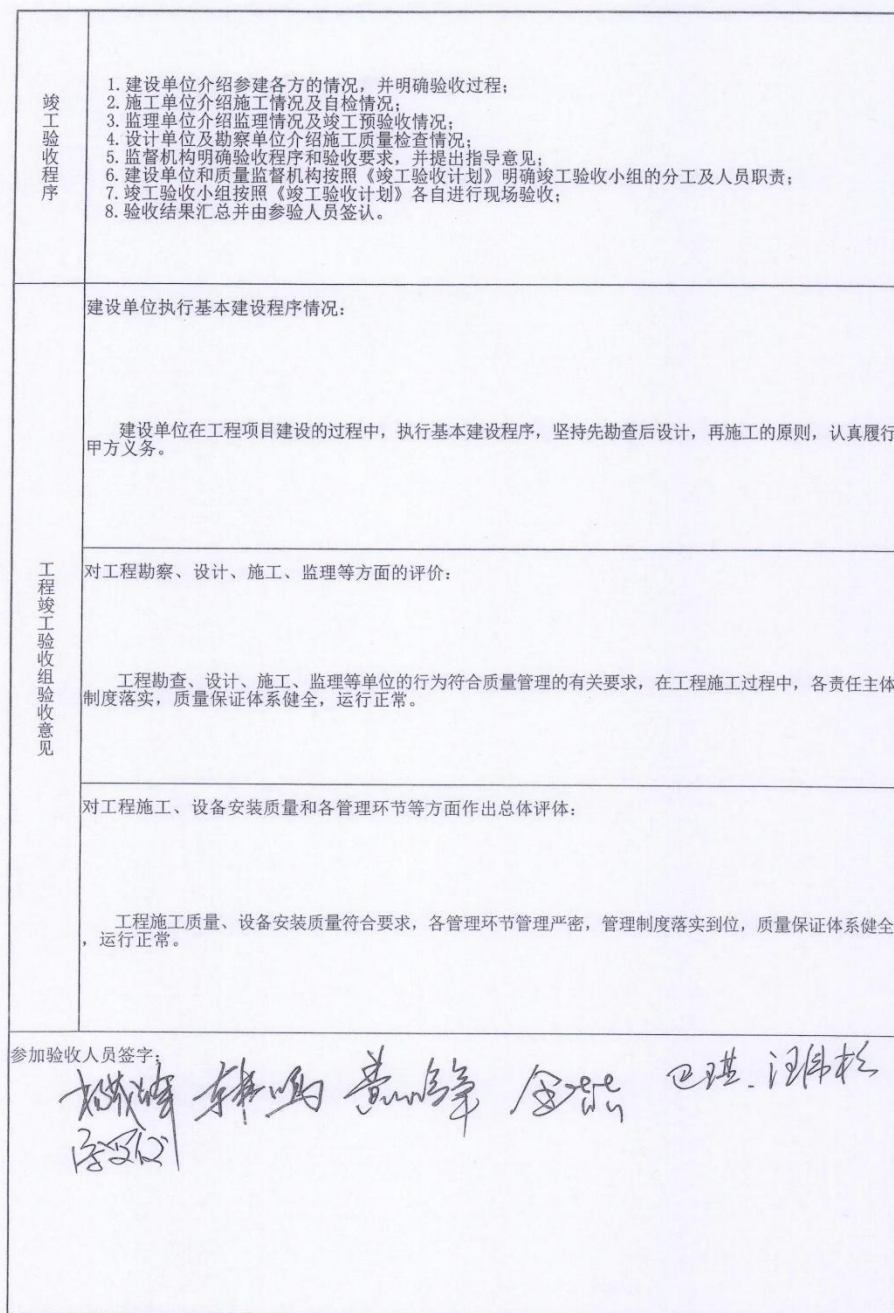 竣工验收程序
1. 建设单位介绍参建各方的情况，并明确验收过程；
2. 施工单位介绍施工情况及自检情况；
3. 监理单位介绍监理情况及竣工预验收情况；
4. 设计单位及勘察单位介绍施工质量检查情况；
5. 监督机构明确验收程序和验收要求，并提出指导意见；
6. 建设单位和质量监督机构按照《竣工验收计划》明确竣工验收小组的分工及人员职责；
7. 竣工验收小组按照《竣工验收计划》各自进行现场验收；
8. 验收结果汇总并由参验人员签认。
工程竣工验收组验收意见
建设单位执行基本建设程序情况：
建设单位在工程项目建设的过程中，执行基本建设程序，坚持先勘查后设计，再施工的原则，认真履行
甲方义务。
对工程勘察、设计、施工、监理等方面的评价：
工程勘查、设计、施工、监理等单位的行为符合质量管理的有关要求，在工程施工过程中，各责任主体
制度落实，质量保证体系健全，运行正常。
对工程施工、设备安装质量和各管理环节等方面作出总体评体：
工程施工质量、设备安装质量符合要求，各管理环节管理严密，管理制度落实到位，质量保证体系健全
，运行正常。
参加验收人员签字：
汪伟杉